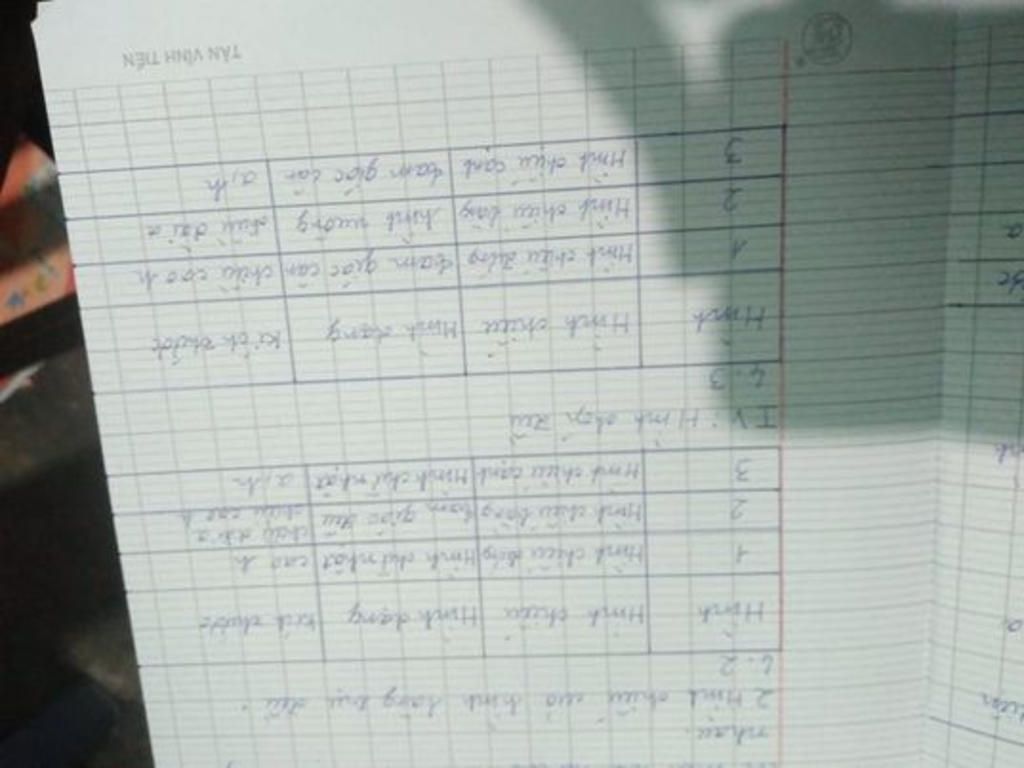 nhau.
2 Hình chiếu của hình lăng trụ đều.
4.2
Hình Hình chiếu Hình dạng kích thước
1 Hình chiếu đứng Hình chữ nhật cao h
2 Hình chiếu bằng tam giác đều chiều dài a chiều cao h
3 Hình chiếu cạnh Hình chữ nhật a, h
IV: Hình chóp đều
4.3
Hình Hình chiếu Hình dạng Kích thước
1 Hình chiếu đứng tam giác cân chiều cao h
2 Hình chiếu bằng hình vuông chiều dài a
3 Hình chiếu cạnh tam giác cân a, h
TÂN VĨNH TIẾN